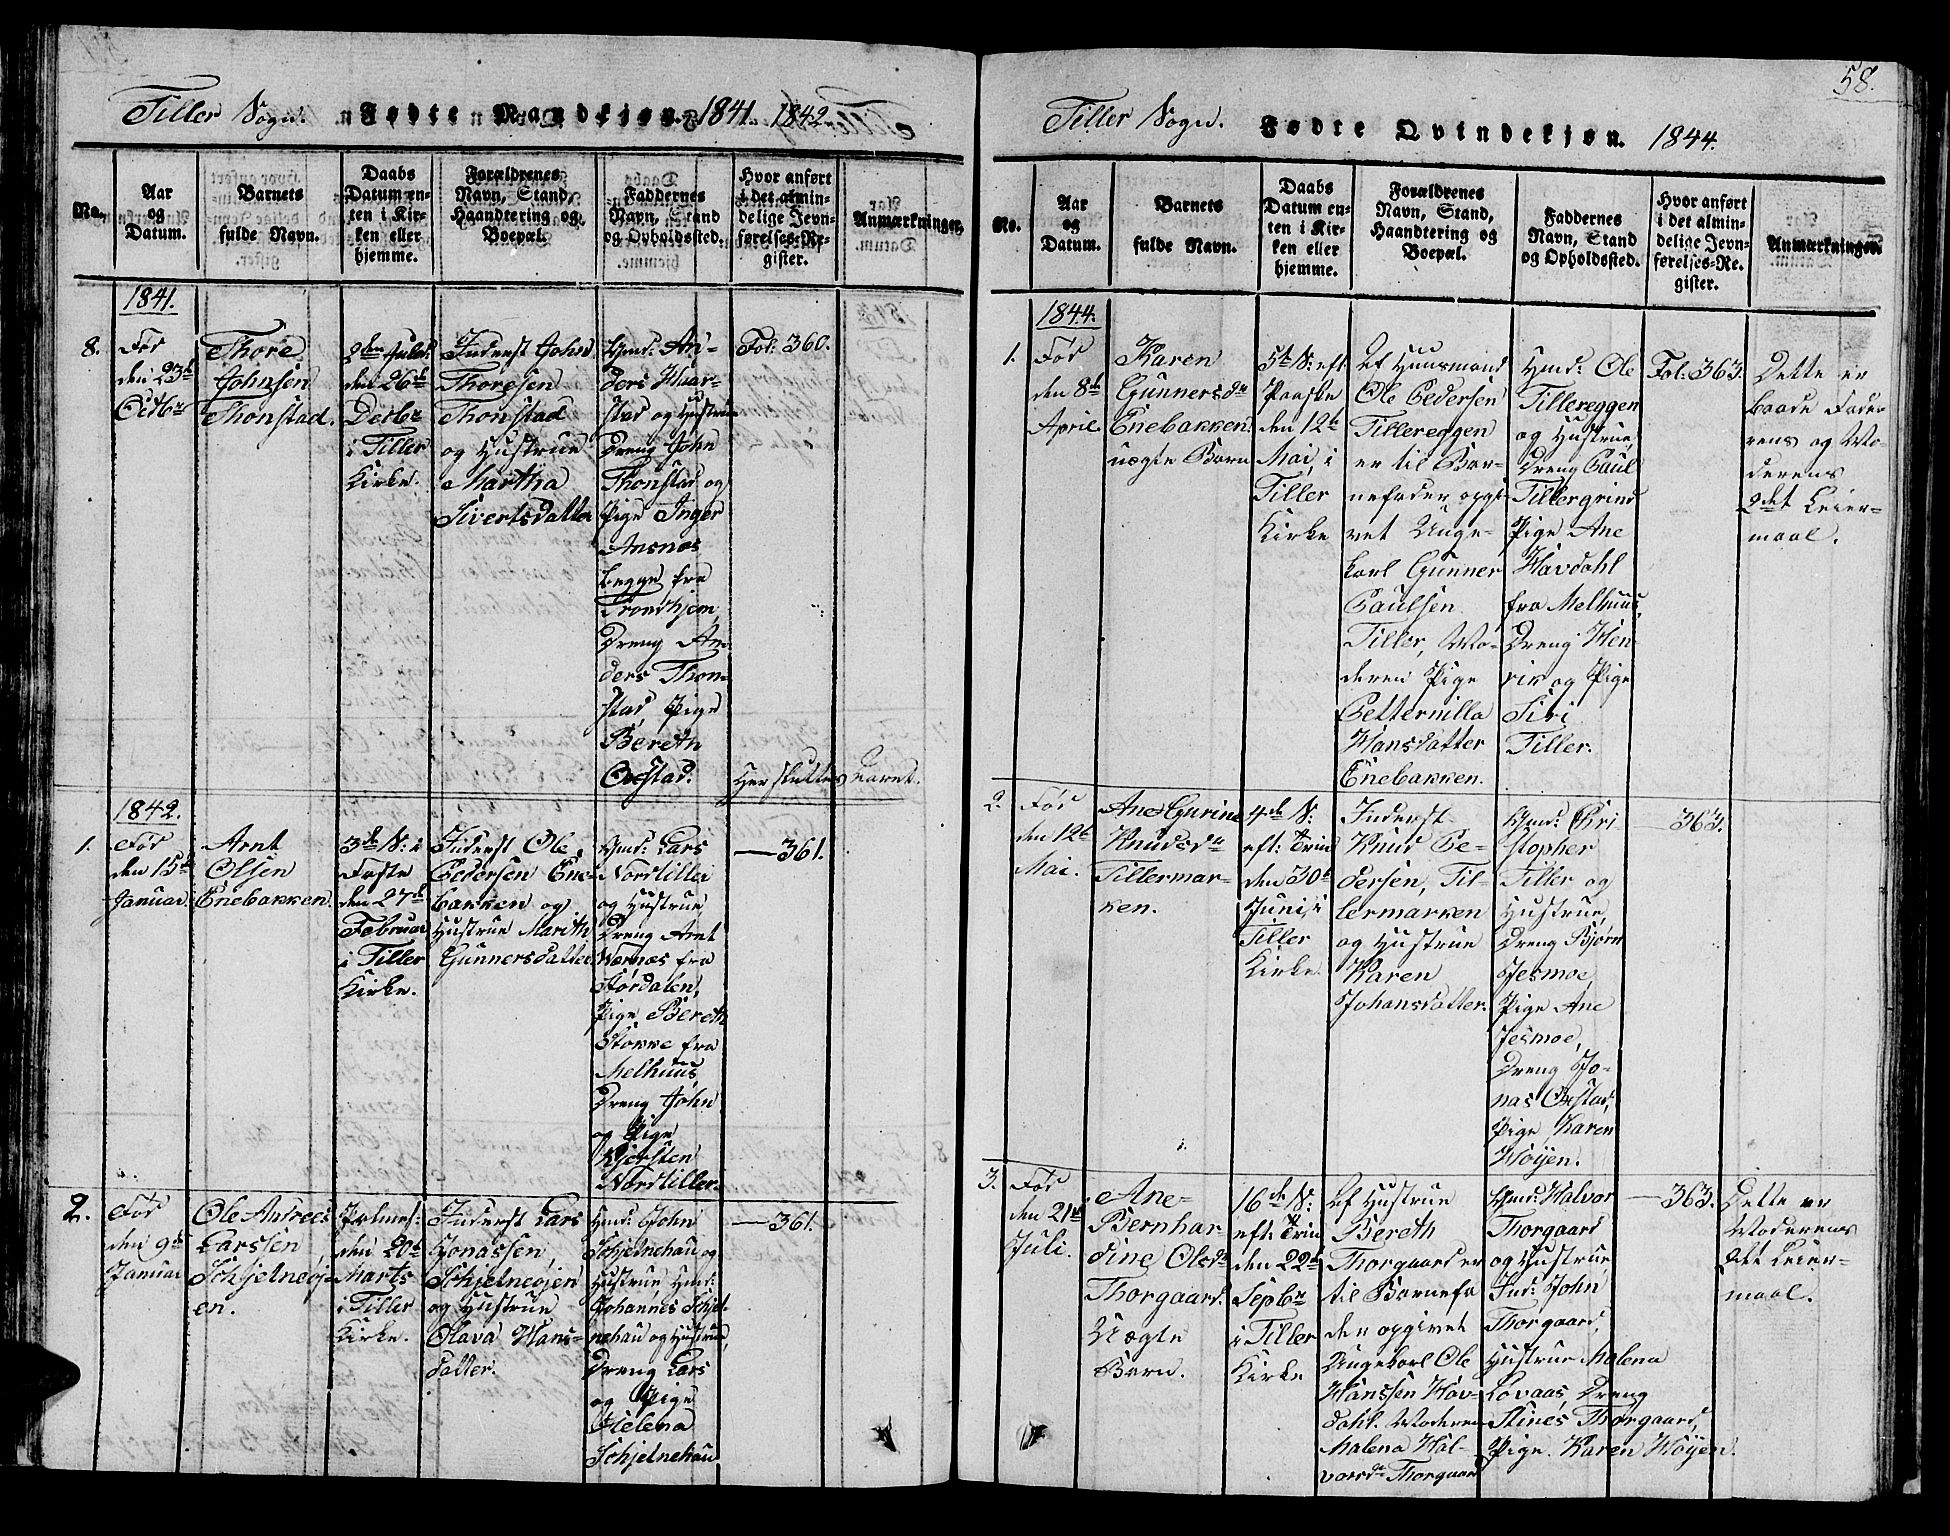 Tiller Sogn. Fødte Mandkjøn. 1841. 1842.
No.
Aar
og
Datum.
Barnets
fulde Navn.
Daabs
Datum en-
ten i Kir-
ken eller
hjemme.
Forældrenes
Navn, Stand,
Haandtering og
Boepæl.
Faddernes
Navn, Stand
og Opholdssted.
Hvor anført
i det almin-
delige Jevn-
førelses-Re-
gister.
Anmærkninger.
1841.
8.
Fød
den 23de
Octbr
Thore
Johnsen
Thonstad.
2den Juled:
den 26de
Decbr
i Tiller
Kirke.
Inderst John
Thoresen
Thonstad
og Hustrue
Martha
Sivertsdatter
Gmd: An-
ders Haar-
stad og Hustrue
Dreng John
Thonstad og
Pige Inger
Ansnæs
begge fra
Trondhjem,
Dreng An-
ders Thon-
stad, Pige
Bereth
Oxstad.
Fol: 360.
Her sluttes Aaret.
1842.
1.
Fød
den 15de
Januar
Arnt
Olsen
Enebakken.
3de S: i
Faste
den 27de
Februar
i Tiller
Kirke.
Inderst Ole
Pedersen Ene-
bakken og
Hustrue Marith
Gunnersdatter
Gmd: Lars
Nordtiller
og Hustrue,
Dreng Arnt
Værnæs fra
Størdalen,
Pige Bereth
Stokke fra
Melhuus
Dreng John
og Pige
Kjersten
Nordtiller.
— 361.
2.
Fød
den 9de
Januar
Ole Andreas
Larssen
Schjelneøi-
en.
Palmes:
den 20de
Marts
i Tiller
Kirke.
Inderst Lars
Jonassen
Schjelneøjen
og Hustrue
Olava Hans-
datter.
Gmd: John
Schjelnehau og
Hustrue, Gmd:
Johannes Schjel-
nehau og Hustrue,
Dreng Lars
og Pige
Helena
Schjelnehau
— 361.
58.
Tiller Sogn. Fødte Qvindekjøn. 1844.
No.
Aar
og
Datum.
Barnets
fulde Navn.
Daabs
Datum en-
ten i Kir-
ken eller
hjemme.
Forældrenes
Navn, Stand,
Haandtering og
Boepæl.
Faddernes
Navn, Stand
og Opholdssted.
Hvor anført
i det almin-
delige Jevn-
førelses-Re-
gister.
Anmærkninger.
1844.
1.
Fød
den 8de
April.
Karen
Gunnersdr
Enebakken.
uægte Barn
5te S: eft:
Paaske
den 12te
Mai, i
Tiller
Kirke
Af Huusmand
Ole Pedersen
Tillereggen
er til Bar-
nefader opgi-
vet Unge-
karl Gunner
Paulsen
Tiller, Mo-
deren Pige
Petternilla
Hansdatter
Enebakken.
Gmd: Ole
Tillereggen
og Hustrue,
Dreng Paul
Tillergrind
Pige Ane
Havdahl
fra Melhuus,
Dreng Hen-
rik og Pige
Siri
Tiller.
Fol: 363.
Dette er
baade Fade-
rens og Mo-
derens
2det Leier-
maal.
2.
Fød
den 12te
Mai.
Ane Gurine
Knudsdr
Tillermar-
ken.
4de S:
eft: Trin
den 30te
Juni, i
Tiller
Kirke.
Inderst
Knud Pe-
dersen, Til-
lermarken
og Hustrue
Karen
Johansdatter.
Gmd: Chri-
stopher
Tiller og
Hustrue,
Dreng Bjørn
Jesmoe,
Pige Ane
Jesmoe,
Dreng Jo-
nas Oxstad,
Pige Karen
Høyen.
— 363.
3.
Fød
den 21de
Juli.
Ane-
Bernhar-
dine Olsdr
Thorgaard.
Uægte
Barn.
16de S:
eft: Trin
den 22de
Septbr
i Tiller
Kirke
Af Hustrue
Bereth
Thorgaard er
til Barnefa-
der opgivet
Ungekarl Ole
Hanssen Hov-
dahl. Moderen
Malena Hal-
vorsdr Thorgaard
Gmd: Halvor
Thorgaard
og Hustrue
Ind: John
Thorgaard,
Hustrue Malena
Lovaas, Dreng
Stines Thorgaard,
Pige Karen Høyen.
— 363.
Dette er
Moderens
2det Leier-
maal.